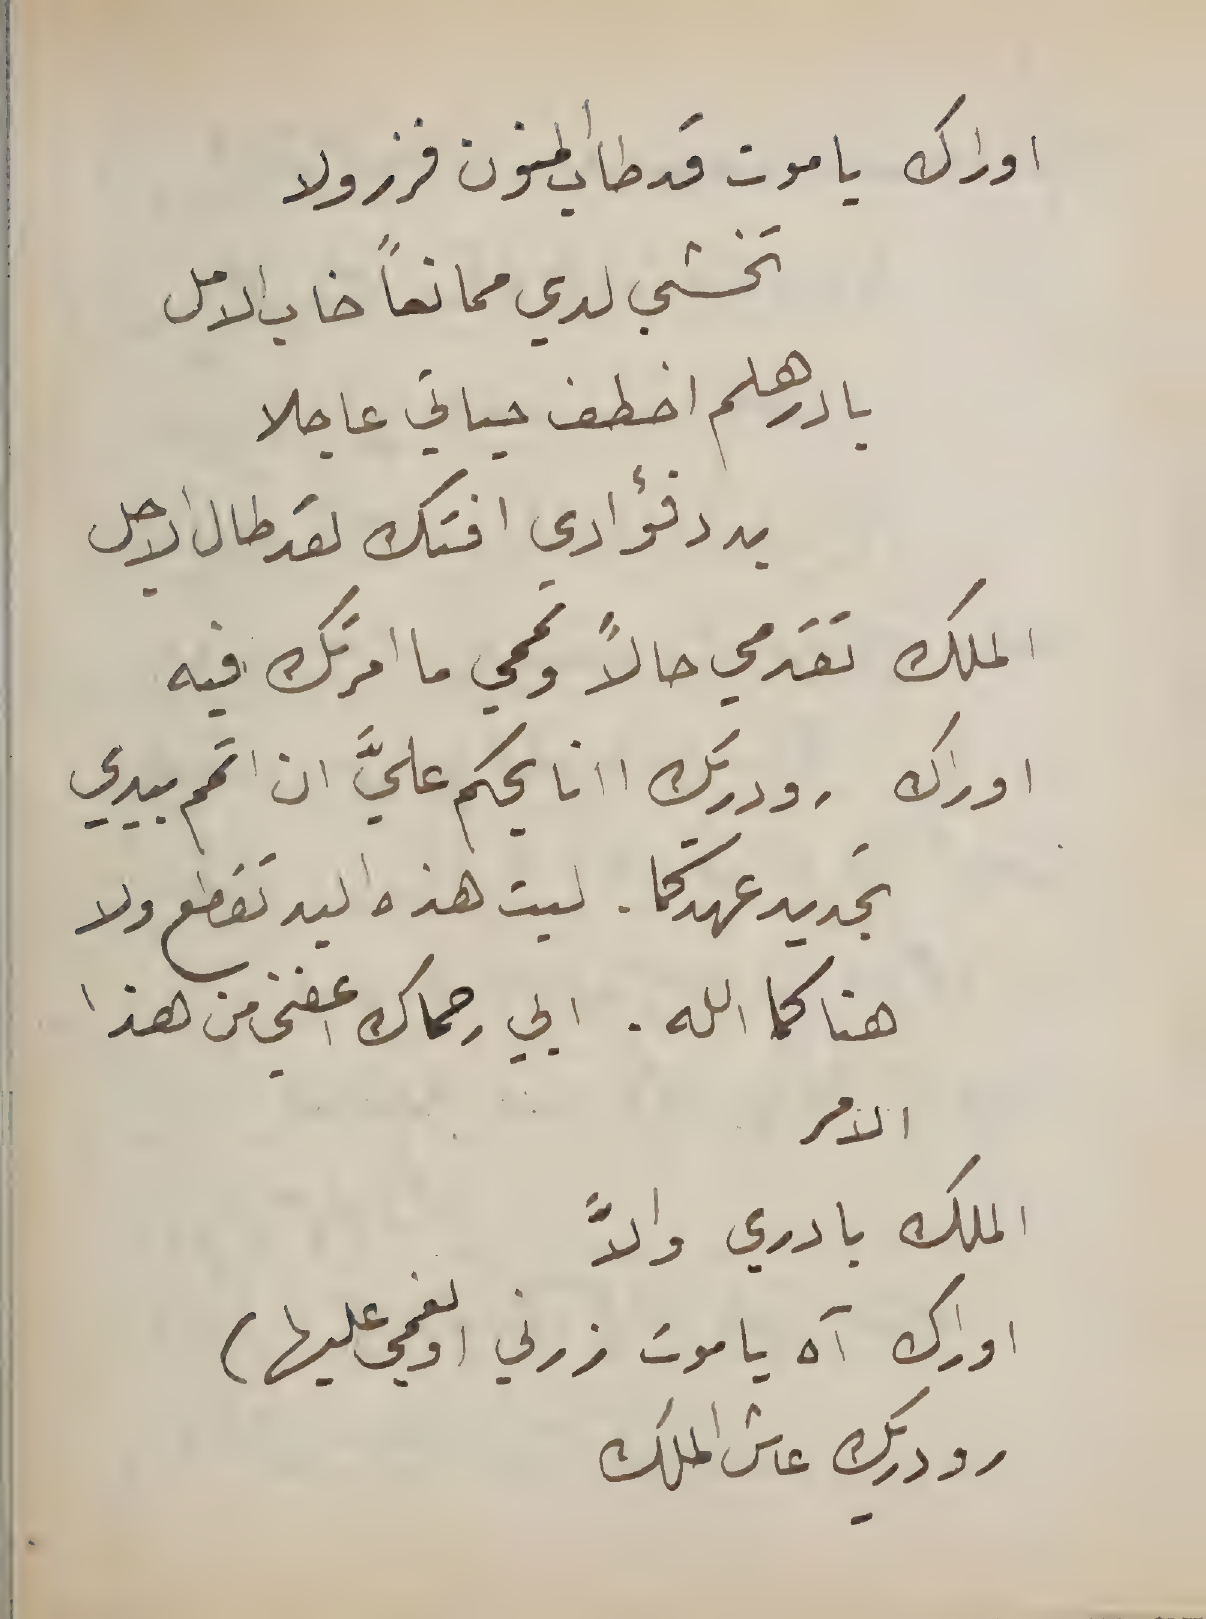 اوراك يا موت قد طاب المنون فزر ولا
تخشى لدي ممانعاً خاب الامل
بادر هلم اخطف حياتي عاجلا
بدد فؤادي افتك لقد طال الاجل
الملك تقدمي حالاً وتممي ما امرتك فيه
اوراك رودريك اانا يحكم عليَّ ان اتمم بيدي
تجديد عهدكما. ليت هذه اليد تقطع ولا
هناكما الله. ابي رحماك اعفني من هذا
الامر
الملك بادري والاَّ
اوراك آه يا موت زرني (ويغمى عليها)
رودريك عاش الملك